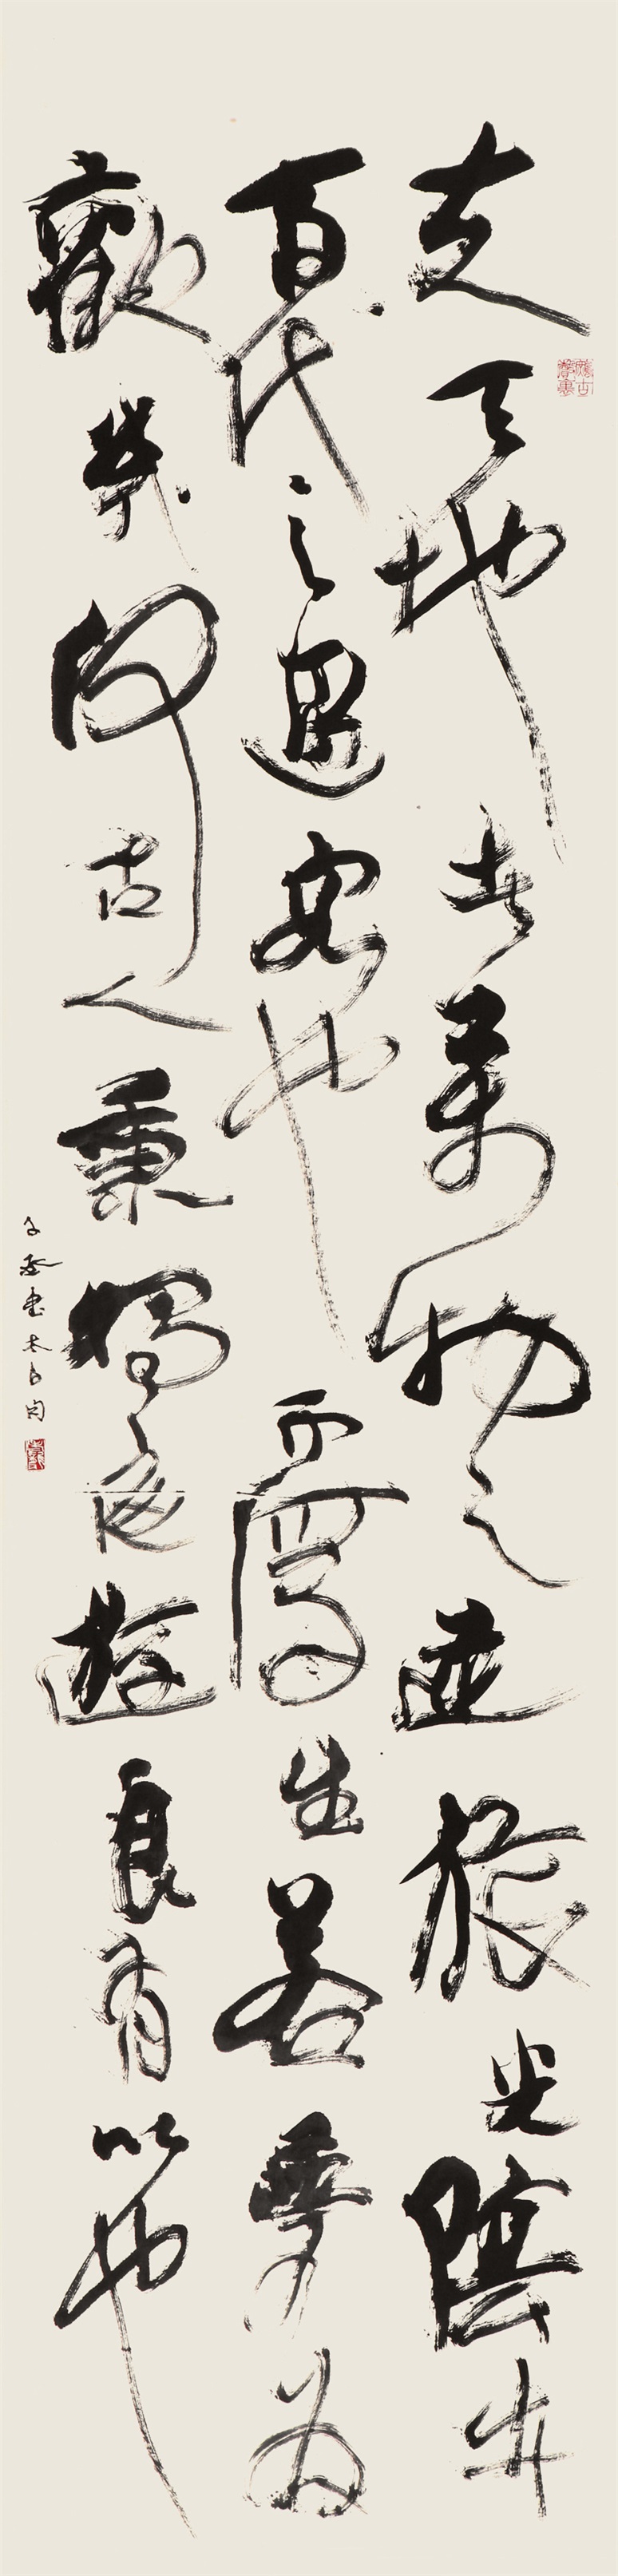 夫天地者萬物之逆旅光陰者
百代之過客也而浮生若夢為
歡幾何古人秉燭夜遊良有以也
書太白句